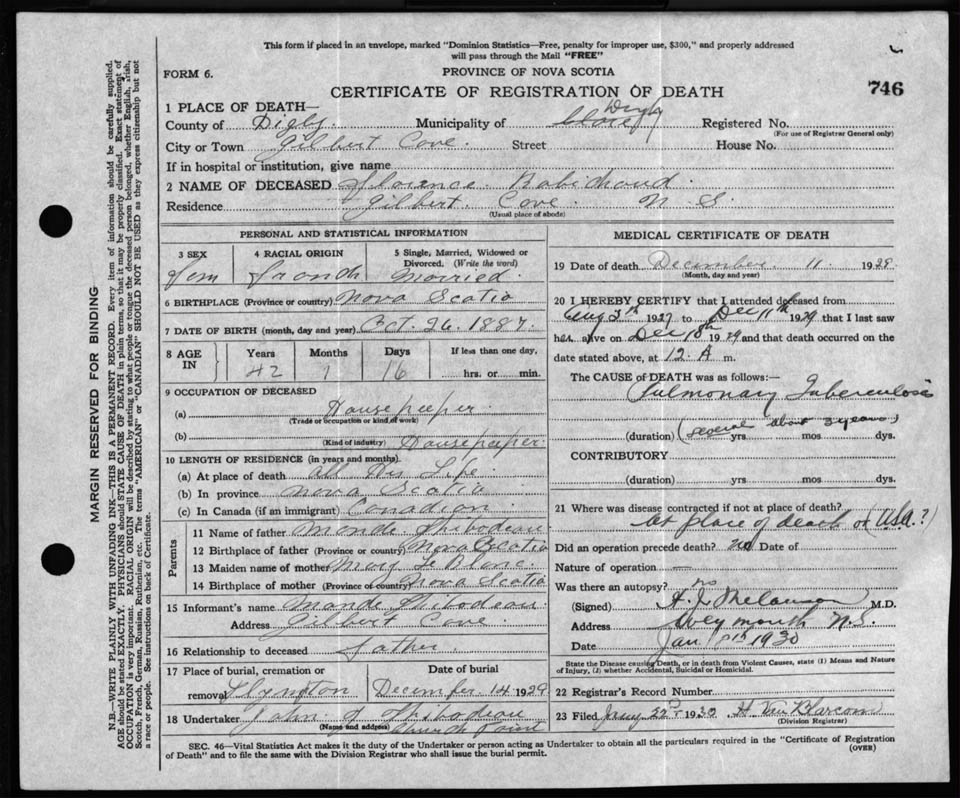 This form if placed in an envelope, marked "Dominion Statistics—Free, penalty for improper use, $300," and properly addressed
will pass through the Mail "FREE"
FORM 6.
PROVINCE OF NOVA SCOTIA
CERTIFICATE OF REGISTRATION OF DEATH
746
1 PLACE OF DEATH—
County of Digby Municipality of Clare Digby Registered No.
(For use of Registrar General only)
City or Town Gilbert Cove. Street House No.
If in hospital or institution, give name
2 NAME OF DECEASED Florence Robichaud
Residence Gilbert Cove. N. S.
(Usual place of abode)
PERSONAL AND STATISTICAL INFORMATION
3 SEX 4 RACIAL ORIGIN 5 Single, Married, Widowed or Divorced. (Write the word)
fem french Married.
6 BIRTHPLACE (Province or country) Nova Scotia
7 DATE OF BIRTH (month, day and year) Oct. 26. 1887.
8 AGE IN Years Months Days If less than one day,
42 1 16 hrs. or min.
9 OCCUPATION OF DECEASED
(a) Housekeeper.
(Trade or occupation or kind of work)
(b) Housekeeper
(Kind of industry)
10 LENGTH OF RESIDENCE (in years and months).
(a) At place of death all His Life.
(b) In province Nova Scotia
(c) In Canada (if an immigrant) Canadian
Parents
11 Name of father Mande Thibodeau
12 Birthplace of father (Province or country) Nova Scotia
13 Maiden name of mother Mary Le Blanc.
14 Birthplace of mother (Province or country) Nova Scotia
15 Informant's name Mande Thibodeau
Address Gilbert Cove.
16 Relationship to deceased father.
17 Place of burial, cremation or Date of burial
removal Plympton December 14 1929
18 Undertaker John J Thibodeau
(Name and address) Church Point
MEDICAL CERTIFICATE OF DEATH
19 Date of death December 11 1929
(Month, day and year)
20 I HEREBY CERTIFY that I attended deceased from
Aug 5th 1927 to Dec 11th 1929 that I last saw
her alive on Dec 10th 1929 and that death occurred on the
date stated above, at 12 A m.
The CAUSE of DEATH was as follows:—
Pulmonary Tuberculosis
(several about 3 years)
(duration) yrs. mos. dys.
CONTRIBUTORY
(duration) yrs. mos. dys.
21 Where was disease contracted if not at place of death?
At place of death or (U.S.A.?)
Did an operation precede death? no Date of
Nature of operation —
Was there an autopsy? no
(Signed) M.D.
Address Weymouth N.S.
Date Jan 1930
State the Disease causing Death, or in death from Violent Causes, state (1) Means and Nature
of Injury, (2) whether Accidental, Suicidal or Homicidal.
22 Registrar's Record Number
23 Filed Jany 22nd 1930 H. Van Blarcom
(Division Registrar)
SEC. 46—Vital Statistics Act makes it the duty of the Undertaker or person acting as Undertaker to obtain all the particulars required in the "Certificate of Registration
of Death" and to file the same with the Division Registrar who shall issue the burial permit.
(OVER)
MARGIN RESERVED FOR BINDING
N.B.—WRITE PLAINLY WITH UNFADING INK—THIS IS A PERMANENT RECORD. Every item of information should be carefully supplied.
AGE should be stated EXACTLY. PHYSICIANS should STATE CAUSE OF DEATH in plain terms, so that it may be properly classified. Exact statement of
OCCUPATION is very important. RACIAL ORIGIN will be described by stating to what people or tongue the deceased person belonged, whether English, Irish,
Scotch, French, German, Russian, Ruthenian, etc. The terms "AMERICAN" or "CANADIAN" SHOULD NOT BE USED as they express citizenship but not
a race or people. See instructions on back of Certificate.